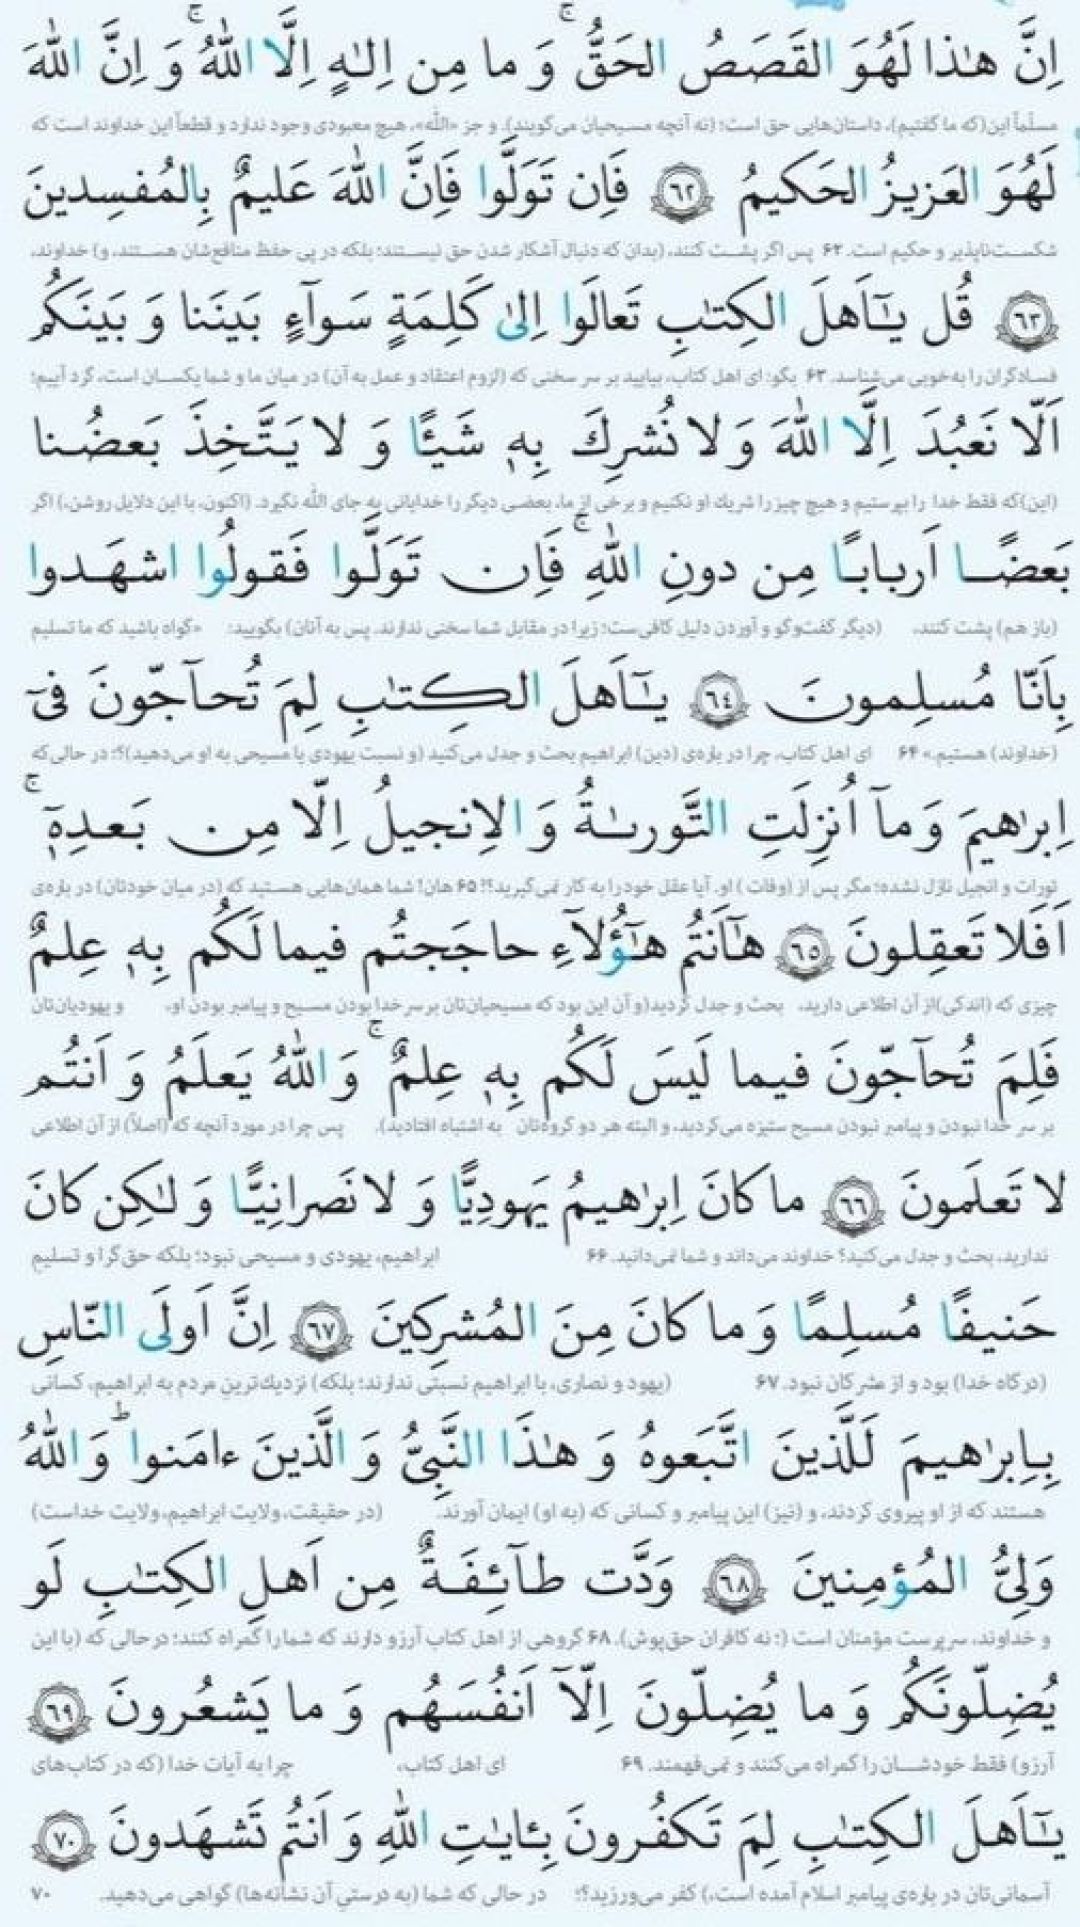 اِنَّ هٰذا لَهُوَ القَصَصُ الحَقُّ ۚ وَ ما مِن اِلـٰهٍ اِلَّا اللّٰهُ ۚ وَ اِنَّ اللّٰهَ
مسلّماً این(که ما گفتیم)، داستان‌هایی حق است؛ (نه آنچه مسیحیان می‌گویند). و جز «اللّٰه»، هیچ معبودی وجود ندارد و قطعاً این خداوند است که
لَهُوَ العَزیزُ الحَکیمُ ﴿٦٢﴾ فَاِن تَوَلَّوا فَاِنَّ اللّٰهَ عَلیمٌ بِالمُفسِدینَ
شکست‌ناپذیر و حکیم است. ۶۲ پس اگر پشت کنند، (بدان که دنبال آشکار شدن حق نیستند؛ بلکه در پی حفظ منافع‌شان هستند، و) خداوند،
﴿٦٣﴾ قُل یـٰٓاَهلَ الکِتٰبِ تَعالَوا اِلیٰ کَلِمَةٍ سَوآءٍ بَینَنا وَ بَینَکُم
فسادگران را به‌خوبی می‌شناسد. ۶۳ بگو: ای اهل کتاب، بیایید بر سر سخنی که (لزوم اعتقاد و عمل به آن) در میان ما و شما یکسان است، گرد آییم؛
اَلّا نَعبُدَ اِلَّا اللّٰهَ وَ لا نُشرِكَ بِهٖ شَیـًٔا وَ لا یَتَّخِذَ بَعضُنا
(این)که فقط خدا را بپرستیم و هیچ چیز را شریك او نکنیم و برخی از ما، بعضی دیگر را خدایانی به جای اللّٰه نگیرد. (اکنون، با این دلایل روشن،) اگر
بَعضًا اَربابًا مِن دونِ اللّٰهِ ۚ فَاِن تَوَلَّوا فَقولُوا اشهَدوا
(باز هم) پشت کنند، (دیگر گفت‌وگو و آوردن دلیل کافی‌ست؛ زیرا در مقابل شما سخنی ندارند. پس به آنان) بگویید: «گواه باشید که ما تسلیم
بِاَنّا مُسلِمونَ ﴿٦٤﴾ یـٰٓاَهلَ الکِتٰبِ لِمَ تُحآجّونَ فیٓ
(خداوند) هستیم.» ۶۴ ای اهل کتاب، چرا در باره‌ی (دین) ابراهیم بحث و جدل می‌کنید (و نسبت یهودی یا مسیحی به او می‌دهید)؟؛ در حالی‌که
اِبرٰهیمَ وَ مآ اُنزِلَتِ التَّورىٰةُ وَ الاِنجیلُ اِلّا مِن بَعدِهٖٓ ۚ
تورات و انجیل نازل نشده؛ مگر پس از (وفات) او. آیا عقل خود را به کار نمی‌گیرید؟! ۶۵ هان! شما همان‌هایی هستید که (در میان خودتان) در باره‌ی
اَفَلا تَعقِلونَ ﴿٦٥﴾ هـٰٓاَنتُم هـٰٓؤُلآءِ حاجَجتُم فیما لَکُم بِهٖ عِلمٌ
چیزی که (اندکی)از آن اطلاعی دارید، بحث و جدل کردید(و آن این بود که مسیحیان‌تان بر سر خدا بودن مسیح و پیامبر بودن او، و یهودیان‌تان
فَلِمَ تُحآجّونَ فیما لَیسَ لَکُم بِهٖ عِلمٌ ۚ وَ اللّٰهُ یَعلَمُ وَ اَنتُم
بر سر خدا نبودن و پیامبر نبودن مسیح ستیزه می‌کردید، و البته هر دو گروه‌تان به اشتباه افتادید). پس چرا در مورد آنچه که (اصلاً) از آن اطلاعی
لا تَعلَمونَ ﴿٦٦﴾ ما کانَ اِبرٰهیمُ یَهودِیًّا وَ لا نَصرانِیًّا وَ لٰکِن کانَ
ندارید، بحث و جدل می‌کنید؟ خداوند می‌داند و شما نمی‌دانید. ۶۶ ابراهیم، یهودی و مسیحی نبود؛ بلکه حق‌گرا و تسلیم
حَنیفًا مُسلِمًا وَ ما کانَ مِنَ المُشرِکینَ ﴿٦٧﴾ اِنَّ اَولَی النّاسِ
(درگاه خدا) بود و از مشرکان نبود. ۶۷ (یهود و نصاری، با ابراهیم نسبتی ندارند؛ بلکه) نزدیك‌ترین مردم به ابراهیم، کسانی
بِاِبرٰهیمَ لَلَّذینَ اتَّبَعوهُ وَ هٰذَا النَّبِیُّ وَ الَّذینَ ءامَنوا ؕ وَ اللّٰهُ
هستند که از او پیروی کردند، و (نیز) این پیامبر و کسانی که (به او) ایمان آورند. (در حقیقت، ولایت ابراهیم، ولایت خداست)
وَلِیُّ المُؤمِنینَ ﴿٦٨﴾ وَدَّت طآئِفَةٌ مِن اَهلِ الکِتٰبِ لَو
و خداوند، سرپرست مؤمنان است (؛ نه کافران حق‌پوش). ۶۸ گروهی از اهل کتاب آرزو دارند که شما را گمراه کنند؛ در حالی که (با این
یُضِلّونَکُم وَ ما یُضِلّونَ اِلّآ اَنفُسَهُم وَ ما یَشعُرونَ ﴿٦٩﴾
آرزو) فقط خودشان را گمراه می‌کنند و نمی‌فهمند. ۶۹ ای اهل کتاب، چرا به آیات خدا (که در کتاب‌های
یـٰٓاَهلَ الکِتٰبِ لِمَ تَکفُرونَ بِـٔایٰتِ اللّٰهِ وَ اَنتُم تَشهَدونَ ﴿٧٠﴾
آسمانی‌تان در باره‌ی پیامبر اسلام آمده است،) کفر می‌ورزید؟؛ در حالی که شما (به درستیِ آن نشانه‌ها) گواهی می‌دهید. ۷۰